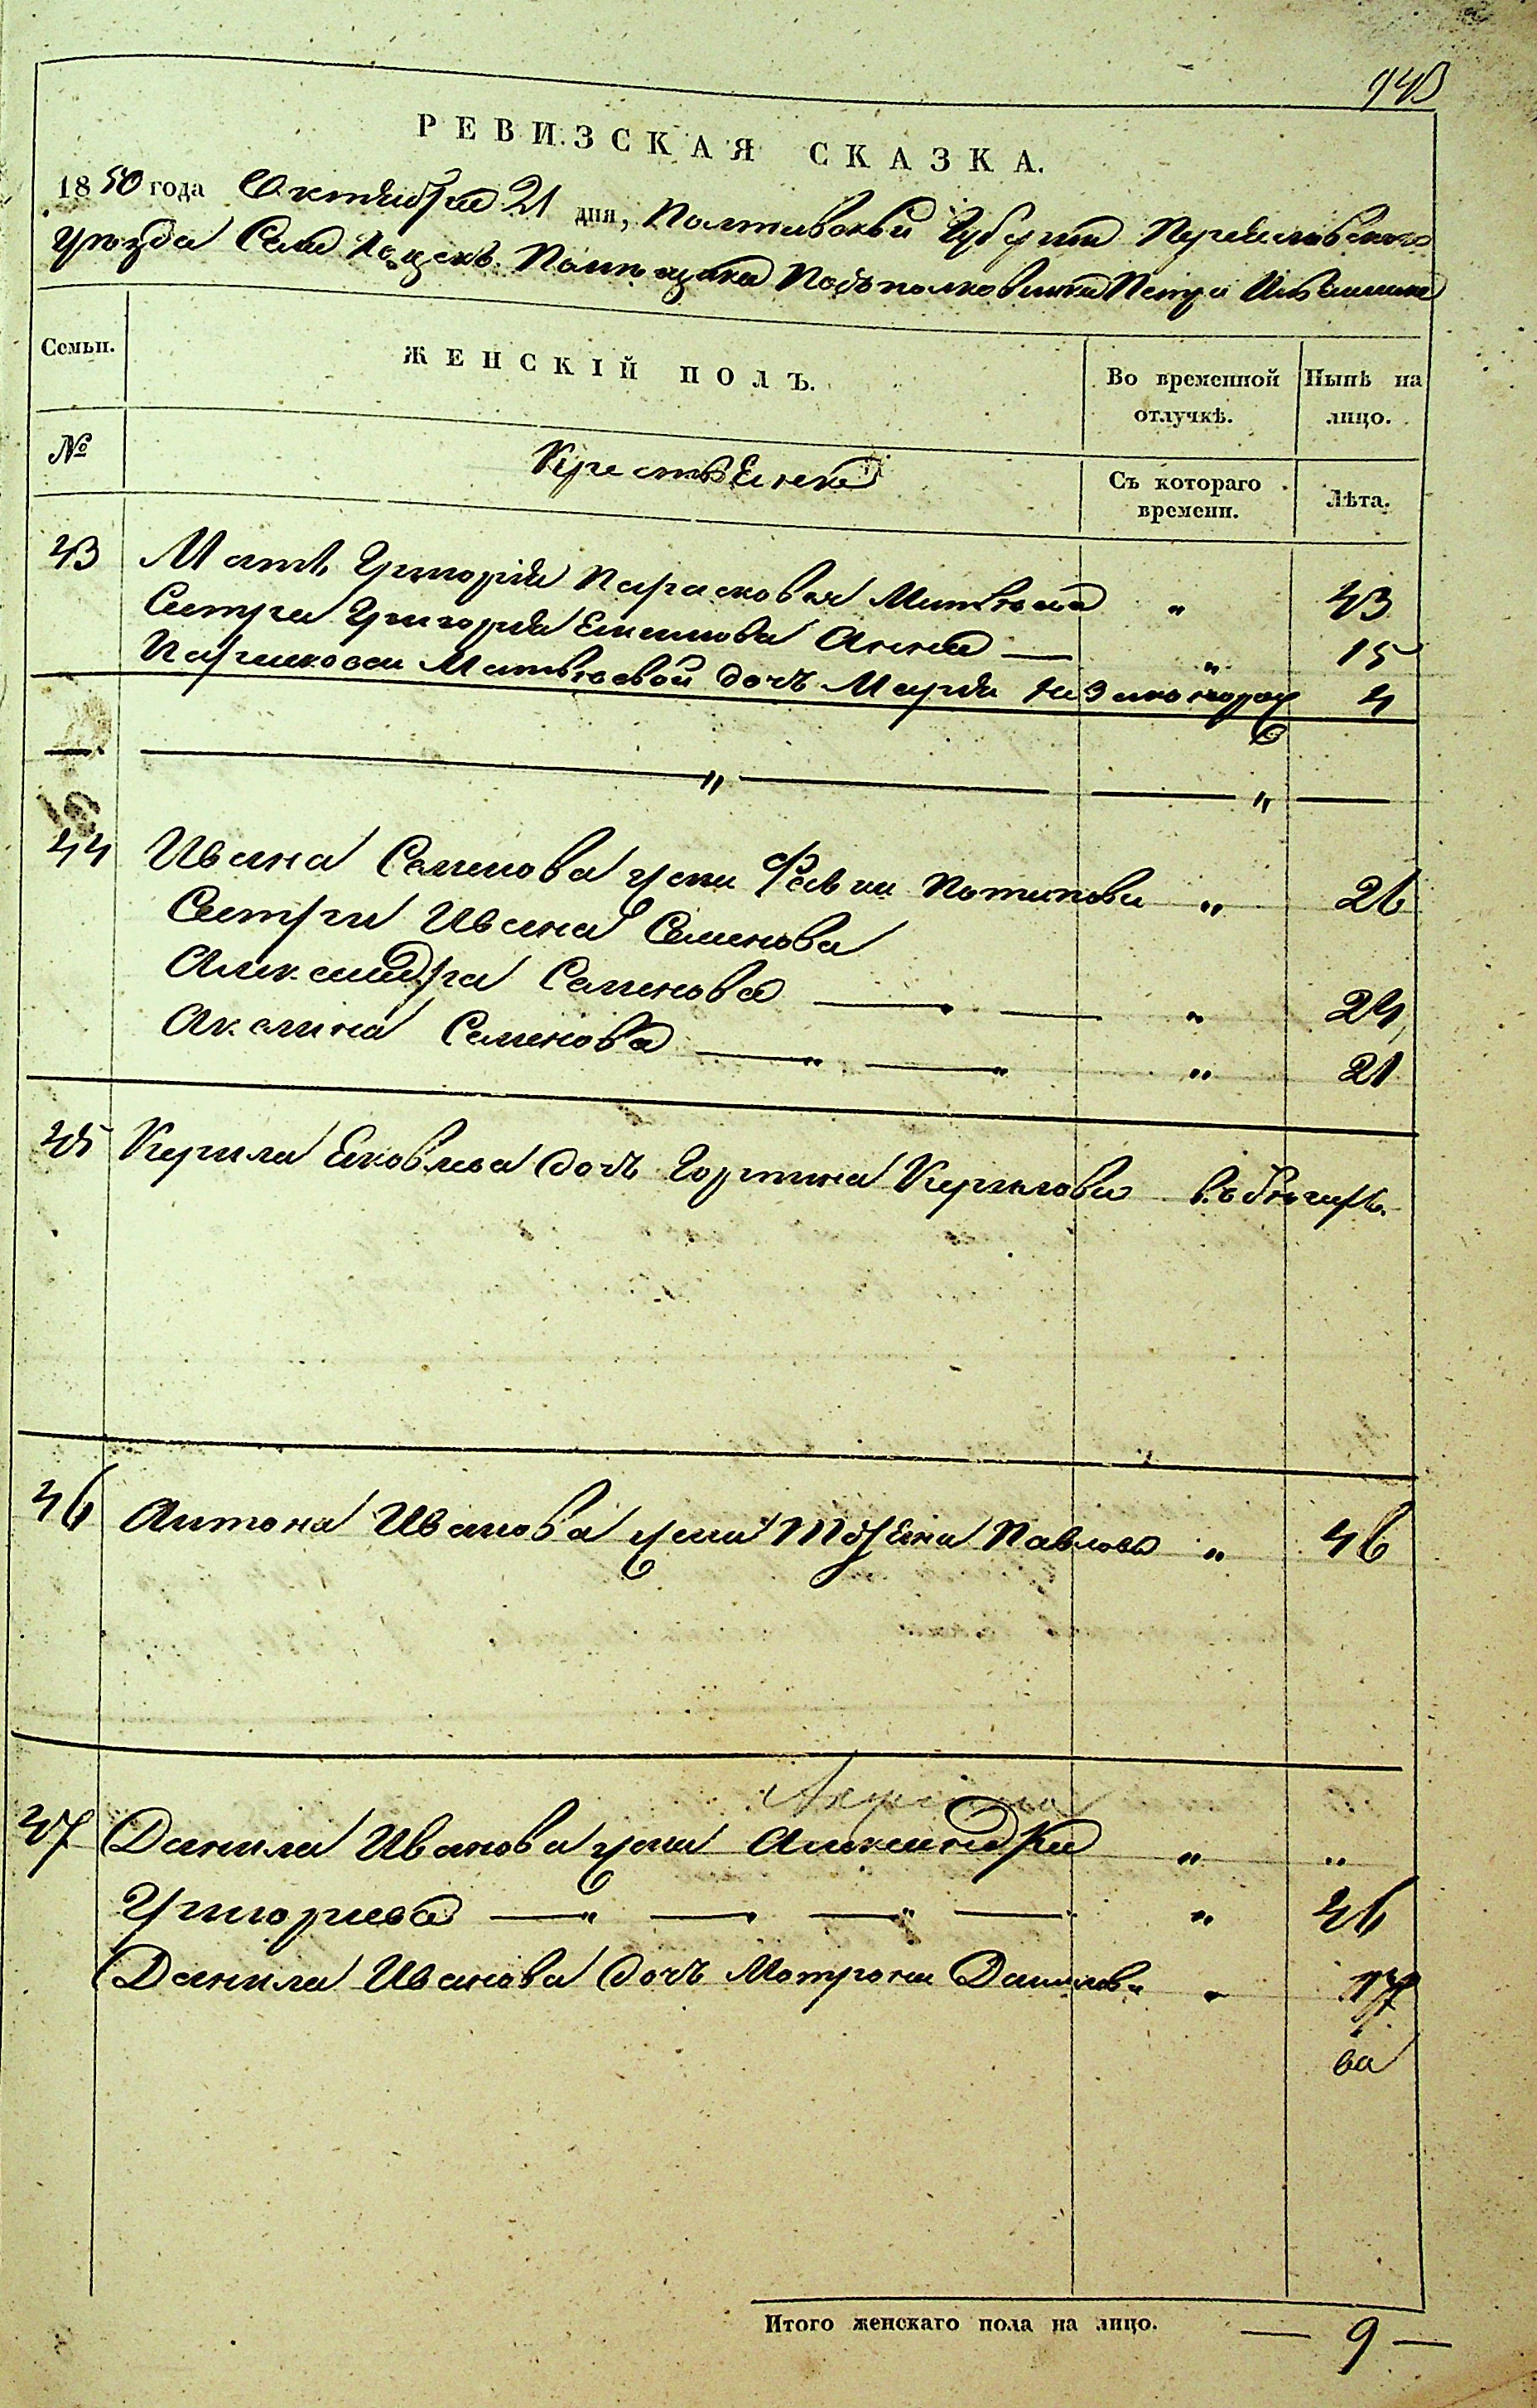 943
РЕВИЗСКАЯ СКАЗКА.
1850 года Октября 21 дня, Полтавской Губерніи Переяславского
уезда Села Помещика Подполковника Петра
Семьи. ЖЕНСКІЙ ПОЛЪ. Во временной отлучкѣ. Нынѣ на лицо.
№ Крестьяне Съ котораго времени. Лѣта.
43 Мать Григорія Парасковья Матвѣева " 43
Сестра Григорія Екимова Анна — " 15
Парасковеи Матвѣевой дочь Марія незаконорож 4
— — " — — " —
44 Ивана Семенова жена Потапова " 26
Сестри Ивана Семенова
Александра Семенова — — " 24
Акелина Семенова — " — " " 21
45 Керила Яковлева дочь Горпина Керилова въ бѣгахъ.
46 Антона Иванова жена Павлова " 46
47 Данила Иванова жена Александра " "
Григориева — " — — " — " 46
Данила Иванова дочь Мотрона Данилова " 17
ва
Итого женскаго пола на лицо. — 9 —